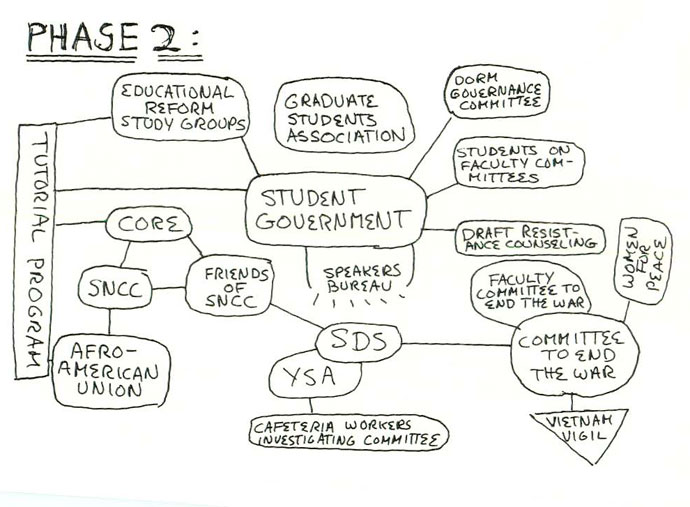 PHASE 2:
EDUCATIONAL
REFORM
STUDY GROUPS
GRADUATE
STUDENTS
ASSOCIATION
DORM
GOVERNANCE
COMMITTEE
STUDENTS ON
FACULTY COM-
MITTEES
TUTORIAL PROGRAM
STUDENT
GOVERNMENT
CORE
DRAFT RESIST-
ANCE COUNSELING
WOMEN
FOR
PEACE
SNCC
FRIENDS
OF
SNCC
SPEAKERS
BUREAU
FACULTY
COMMITTEE TO
END THE WAR
AFRO-
AMERICAN
UNION
SDS
COMMITTEE
TO END
THE WAR
YSA
CAFETERIA WORKERS
INVESTIGATING COMMITTEE
VIETNAM
VIGIL